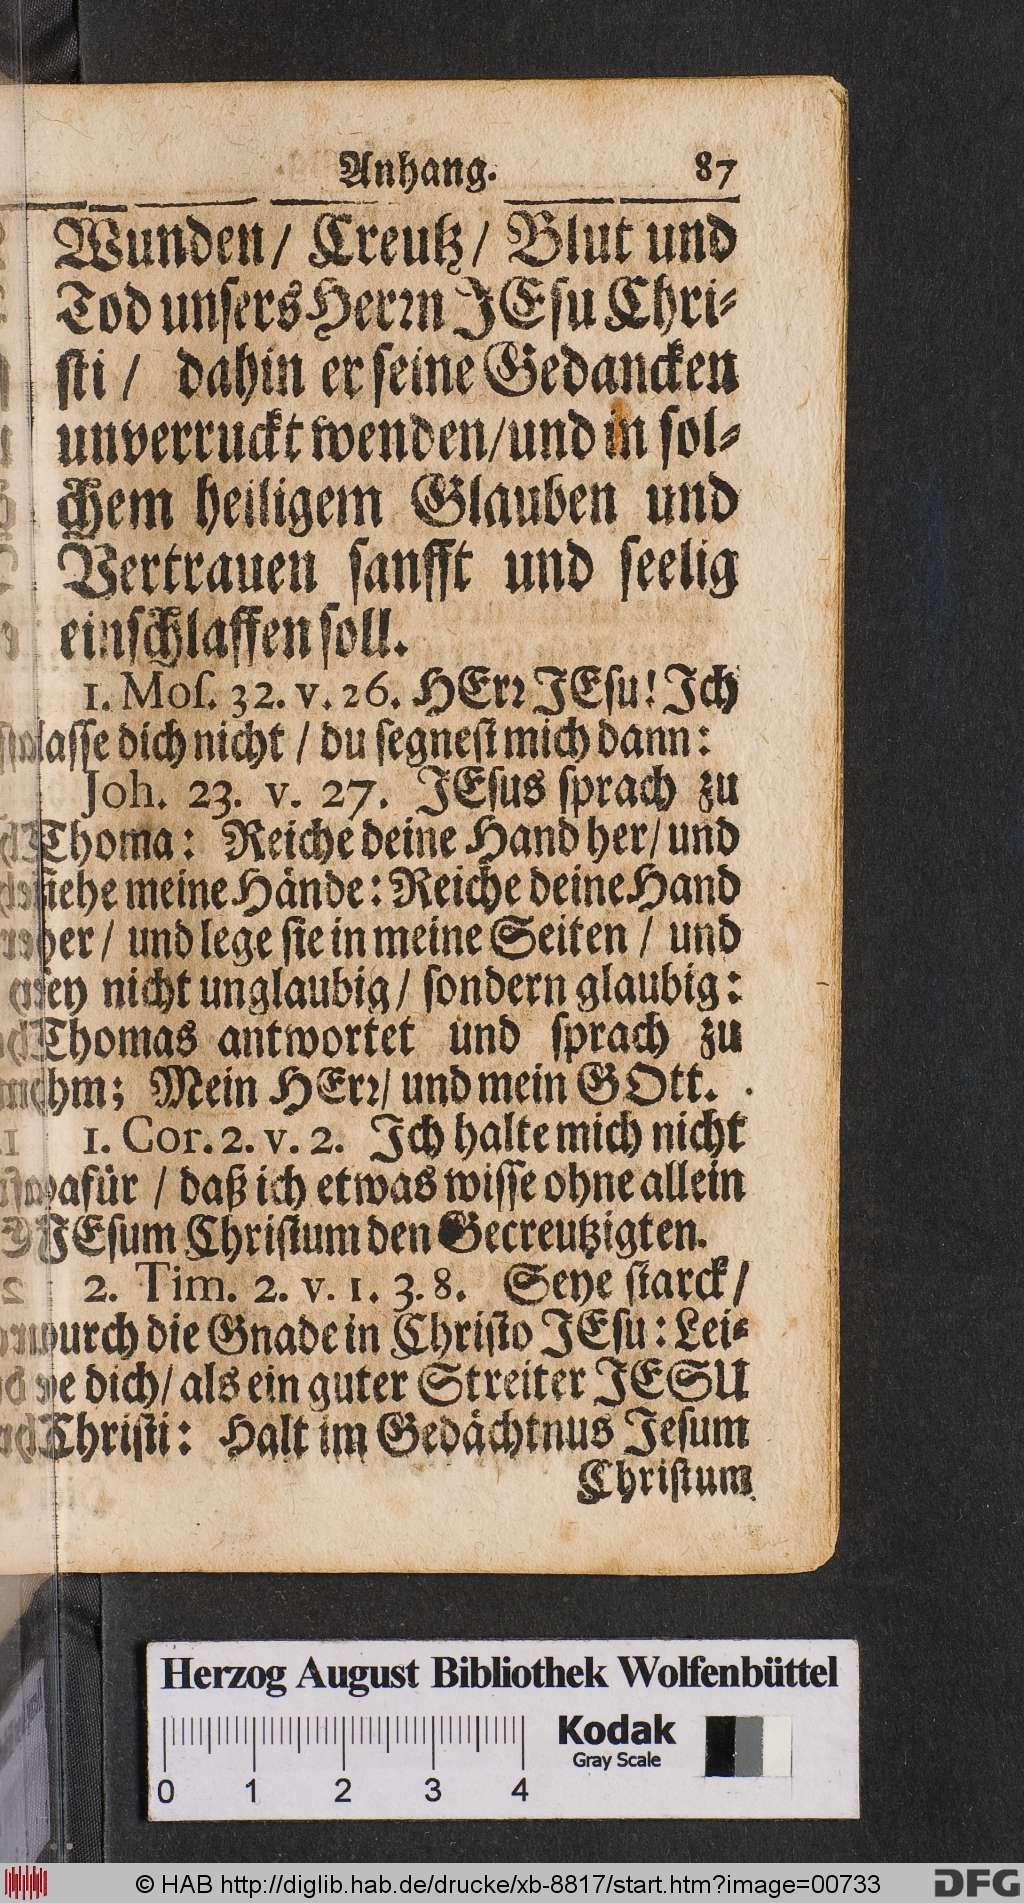 Anhang. 87
Wunden / Creutz / Blut und
Tod unsers Herrn JEsu Chri-
sti / dahin er seine Gedancken
unverruckt wenden / und in sol-
chem heiligem Glauben und
Vertrauen sanfft und seelig
einschlaffen soll.
1. Mos. 32. v. 26. HErr JEsu! Jch
lasse dich nicht / du segnest mich dann:
Joh. 23. v. 27. JEsus sprach zu
Thoma: Reiche deine Hand her / und
siehe meine Hände: Reiche deine Hand
her / und lege sie in meine Seiten / und
sey nicht unglaubig / sondern glaubig:
Thomas antwortet und sprach zu
jhm; Mein HErr / und mein GOtt.
1. Cor. 2. v. 2. Jch halte mich nicht
dafür / daß ich etwas wisse ohne allein
JEsum Christum den Gecreutzigten.
2. Tim. 2. v. 1. 3. 8. Seye starck /
durch die Gnade in Christo JEsu: Lei-
de dich / als ein guter Streiter JESU
Christi: Halt im Gedächtnus Jesum
Christum
Herzog August Bibliothek Wolfenbüttel
Kodak
Gray Scale
0 1 2 3 4
© HAB http://diglib.hab.de/drucke/xb-8817/start.htm?image=00733
DFG